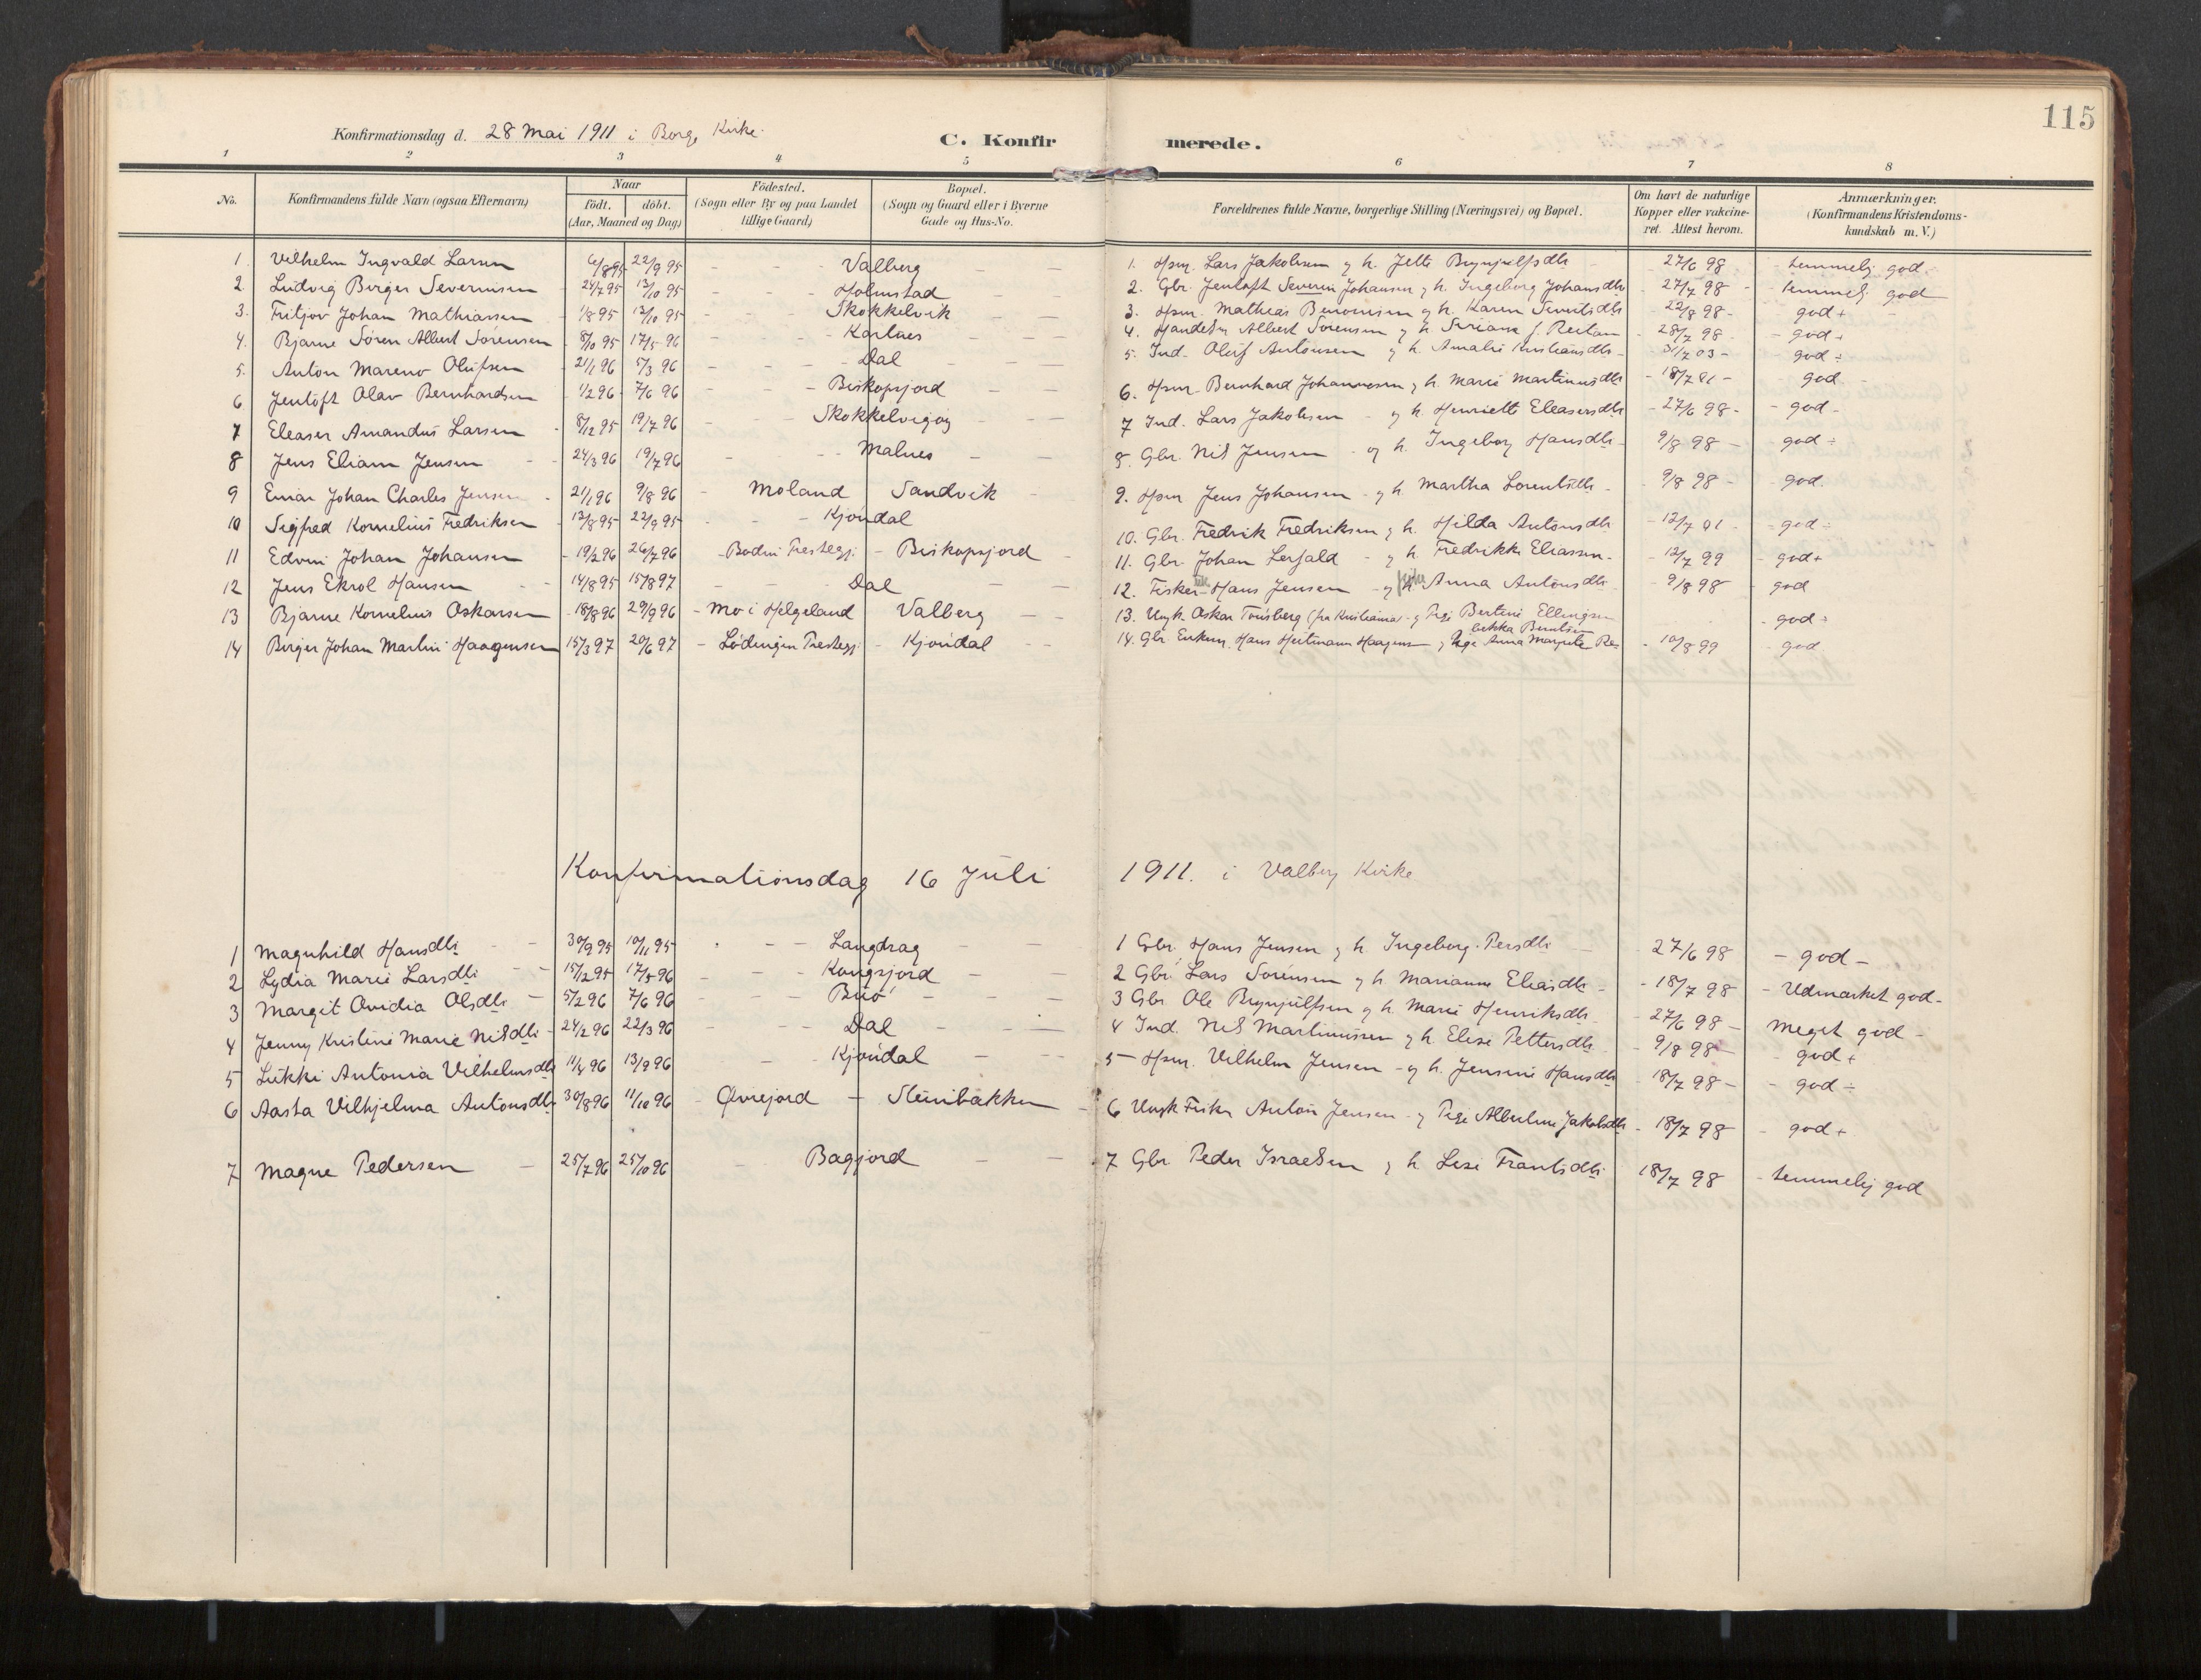 115
Konfirmationsdag d. 28 Mai 1911 i Borge Kirke.
C. Konfirmerede.
1 2 3 4 5 6 7 8
No. Konfirmandens fulde Navn (ogsaa Efternavn) Naar født. døbt. (Aar, Maaned og Dag) Födested. (Sogn eller By og paa Landet tillige Gaard) Bopæl. (Sogn og Gaard eller i Byerne Gade og Hus-No. Forældrenes fulde Navne, borgerlige Stilling (Næringsvei) og Bopæl. Om havt de naturlige Kopper eller vakcineret. Attest herom. Anmærkninger. (Konfirmandens Kristendomskundskab m. V.)
1. Vilhelm Ingvald Larsen 6/8 95 22/9 95 - - Valberg - 1. Hsm. Lars Jakobsen og h. Jette Brynjulfsdtr 27/6 98 - temmelig god
2. Ludvig Birger Severinsen 24/7 95 13/10 95 - - Holmstad - 2. Gbr. Jentoft Severin Johansen og h. Ingeborg Johansdtr 27/7 98 - temmelig god
3. Fritjov Johan Mathiassen 1/8 95 13/10 95 - - Skokkelvik - 3. Hsm. Mathias Benonisen og h. Karen Sivertsdtr 22/8 98 - god +
4. Bjarne Sören Albert Sörensen 8/10 95 17/5 96 - - Kartnes - 4. Handelsm Albert Sörensen og h. f. Reitan - 28/7 98 - god +
5. Anton Mareno Olufsen 21/1 96 5/3 96 - - Dal - 5. Ind. Oluf Antonsen og h. Amalie Kristiansdtr - 31/7 03 - god ÷
6 Jentoft Olav Bernhardsen 1/2 96 7/6 96 - - Biskopsjord - 6. Hsm. Bernhard Johannesen og h. Marie Martinusdtr - 18/7 01 - god
7 Eleaser Amandus Larsen 8/12 95 19/7 96 - - Skokkelvigog - 7 Ind. Lars Jakobsen - og h. Henriette Eleasersdtr - 27/6 98 - god -
8 Jens Eliam Jensen 24/3 96 19/7 96 - - Malnes - 8. Gbr. Nils Jensen - og h. Ingeborg Hansdtr - 9/8 98 - god ÷
9 Einar Johan Charles Jensen 21/1 96 9/8 96 - Moland Sandvik - 9. Hsm Jens Johansen - og h. Martha Lorentsdtr - 9/8 98 - god
10 Sigfred Kornelius Fredriksen 12/8 95 22/9 95 - - Kjöndal 10. Gbr. Fredrik Fredriksen og h. Hilda Antonsdtr - 12/7 01 - god ÷
11 Edvin Johan Johansen - 19/2 96 26/7 96 - Bodin Prestegj. - Biskopsjord - 11. Gbr. Johan Lerfald - og h. Fredrikke Eliassen - 12/7 99 - god +
12 Jens Ekrol Hansen - 14/8 95 15/8 97 - - Dal - 12. Fisker Hans Jensen - og Anna Antonsdtr - 9/8 98 - god
13 Bjarne Kornelius Oskarsen - 18/8 96 29/9 96 - Mo i Helgeland Valberg - 13. Ungk. Oskar Tönsberg (fra Kristiania) og Pige Bertine Ellingsen - god ÷
14 Birger Johan Martin Haagensen 15/3 97 20/6 97 - Lödingen Prestegj. - Kjöndal - 14. Gbr Enkem. Hans Heitmann Haagensen og Pige Anna Margrete Rebekka Berntsen - 10/8 99 - god
Konfirmationsdag 16 Juli 1911. i Valberg Kirke
1 Magnhild Hansdtr 30/9 95 10/11 95 - - Langdrag - 1 Gbr. Hans Jensen og h. Ingeborg Persdtr - 27/6 98 - god -
2 Lydia Marie Larsdtr 15/12 95 17/5 96 - - Kongsjord - 2 Gbr. Lars Sörensen og h Marianne Eliasdtr - 18/7 98 - Udmærket god -
3 Margit Ovidia Olsdtr - 5/2 96 7/6 96 - - Buö - 3 Gbr Ole Brynjulfsen og h. Marie Henriksdtr - 27/6 98 - meget god -
4 Jenny Kristine Marie Nilsdtr - 24/2 96 22/3 96 - - Dal - 4 Ind. Nils Martinussen og h. Elise Pettersdtr - 9/8 98 - god +
5 Lükki Antonia Vilhelmsdtr 11/4 96 13/9 96 - - Kjöndal - 5 Hsm. Vilhelm Jensen - og h. Jensine Hansdtr - 18/7 98 - god ÷
6 Aasta Vilhjelma Antonsdtr 30/8 96 11/10 96 - Øvrejord - Steinbakken - 6 Ungk Fisker Anton Jensen - og Pige Albertine Jakobsdtr - 18/7 98 - god +
7 Magne Pedersen - 25/7 96 25/10 96 - Bagjord - 7 Gbr Peder Israelsen og h. Lise Frantsdtr 18/7 98 - temmelig god